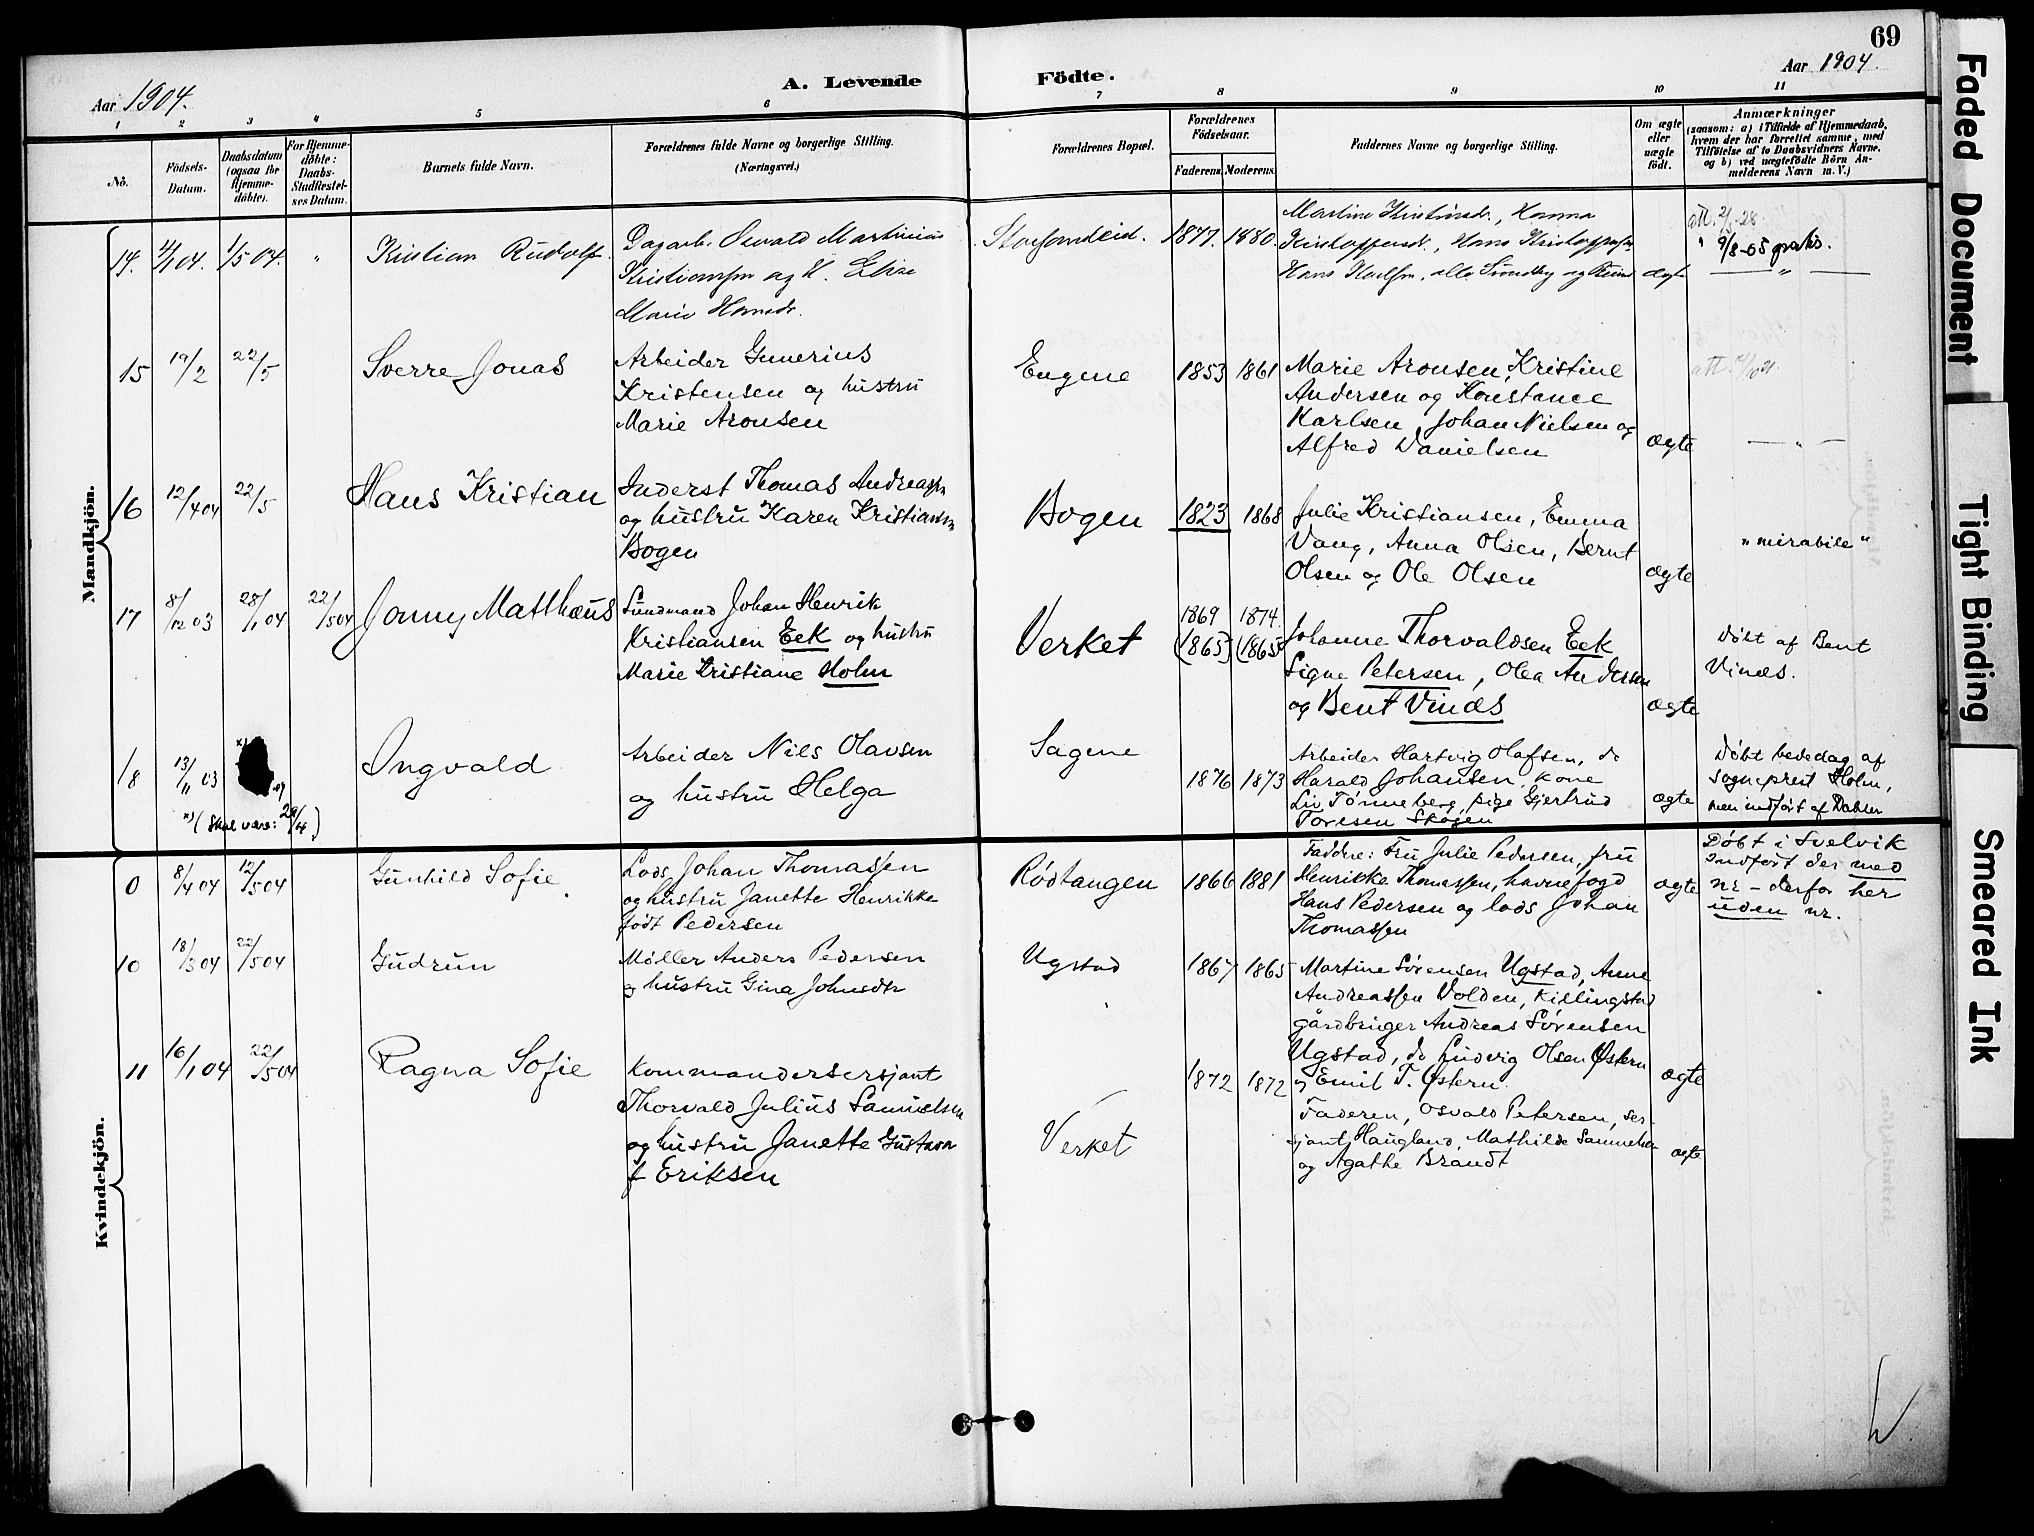 69
Aar 1904.
A. Levende
Födte.
Aar 1904.
1 2 3 4 5 6 7 8 9 10 11
No.
Födsels-Datum.
Daabsdatum (ogsaa for Hjemme-döbte).
For Hjemme-döbte: Daabs-Stadfæstel-ses Datum.
Barnets fulde Navn.
Forældrenes fulde Navne og borgerlige Stilling.
(Næringsvei.)
Forældrenes Bopæl.
Forældrenes Födselsaar.
Faderens. Moderens.
Faddernes Navne og borgerlige Stilling.
Om ægte eller uægte födt.
Anmærkninger
(saasom: a) i Tilfælde af Hjemmedaab,
hvem der har forrettet samme, med
Tilföielse af to Daabsvidners Navne,
og b) ved uægtefödte Börn An-
melderens Navn m. V.)
Mandkjön.
14. 04. 1/5 04. " Kristian Rudolf
Dagarb. Osvald Martinius
Kristiansen og H. Elise
Marie Hansdr.
1877. 1880.
Hanna
Kristoffersdr., Hans
Hans Karlsen, alle
ægte
att. 2/3-28.
" 9/8-05 gratis.
15 19/2 22/5 Sverre Jonas
Arbeider Gunerius
Kristensen og hustru
Marie Aronsen
Engene 1853 1861
Marie Aronsen, Kristine
Andersen og Konstance
Karlsen, Johan Nielsen og
Alfred Danielsen
ægte
att.
16 12/4 04 22/5 Hans Kristian
Inderst Thomas Andreassen
og hustru Karen Kristiansen
Bogen
Bogen 1823 1868
Julie Kristiansen, Emma
Vang, Anna Olsen, Bernt
Olsen og Ole Olsen
ægte
"mirabile"
17 8/12 03 28/1 04 22/5 04 Jonny Matthæus
Sundmand Johan Henrik
Kristiansen Eek og hustru
Marie Kristiane Holm
Verket 1869 1874.
(1865) (1865)
Johanne Thorvaldsen Eek
Signe Petersen, Olea Andersen
og Bent Vinæs
ægte
Døbt af Bent
Vinæs.
18 13/11 03 x) Ingvald
x) (Skal være: 29/4)
Arbeider Nils Olavsen
og hustru Helga
Sagene 1876 1873
Arbeider Hartvig Olafsen, do
Harald Johansen, kone
Liv Tønneberg, pige Gjertrud
Toresen Skogen
ægte
Døbt bededag af
sogneprest Holm,
men indført af Dahler
Kvindekjön.
0 8/4 04 12/5 04 Gunhild Sofie
Lods Johan Thomassen
og hustru Janette Henrikke
født Pedersen
Rødtangen 1866 1881
Faddre: Fru Julie Pedersen, fru
Henrikke Thomassen, havnefogd
Hans Pedersen og lods Johan
Thomassen
ægte
Døbt i Svelvik
Indført der med
nr – derfor her
uden nr.
10 18/3 04 22/5 04 Gudrun
Møller Anders Pedersen
og hustru Gina Johnsdtr
Ugstad 1867 1865
Martine Sørensen Ugstad, Anne
Andreassen Volden, Killingstad
gårdbruger Andreas Sørensen
Ugstad, do Ludvig Olsen Østern
og Emil T. Østern.
ægte
11 16/1 04 22/5 04 Ragna Sofie
Kommandersersjant
Thorvald Julius Samuelsen
og hustru Janette Gustava
f Eriksen
Verket 1872 1872
Faderen, Osvald Petersen, ser-
sjant Haugland, Mathilde Samuelsen
og Agathe Brandt
ægte
Faded Document
Tight Binding
Smeared Ink